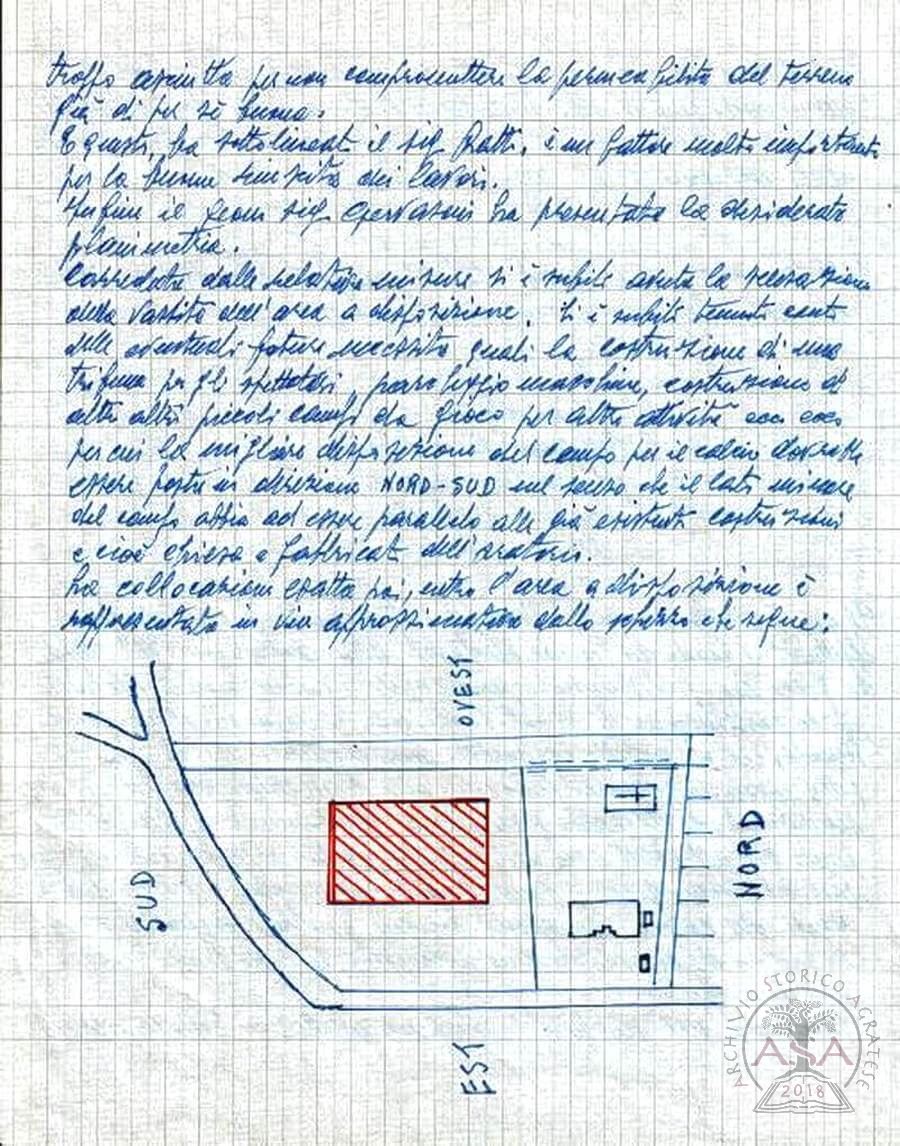 troppo asciutto per non compromettere la permeabilità del terreno
già di per sè buona.
E questo, ha sottolineato il sig. Ratti, è un fattore molto importante
per la buona riuscita dei lavori.
Infine il geom sig. Gervasoni ha presentato la desiderata
planimetria.
Corredata dalle relative misure si è subito avuta la sensazione
della vastità dell'area a disposizione. Si è subito tenuto conto
delle eventuali future necessità quali la costruzione di una
tribuna per gli spettatori, parcheggio macchine, costruzione di
altri piccoli campi da gioco per altre attività ecc ecc
per cui la migliore disposizione del campo per il calcio dovrebbe
essere posta in direzione NORD-SUD nel senso che il lato minore
del campo abbia ad essere parallelo alle già esistenti costruzioni
e cioè chiesa e fabbricati dell'oratorio.
La collocazione esatta poi, entro l'area a disposizione è
rappresentata in via approssimativa dallo schizzo che segue:
OVEST
NORD
SUD
EST
ARCHIVIO STORICO AGRATESE
ASA
2018